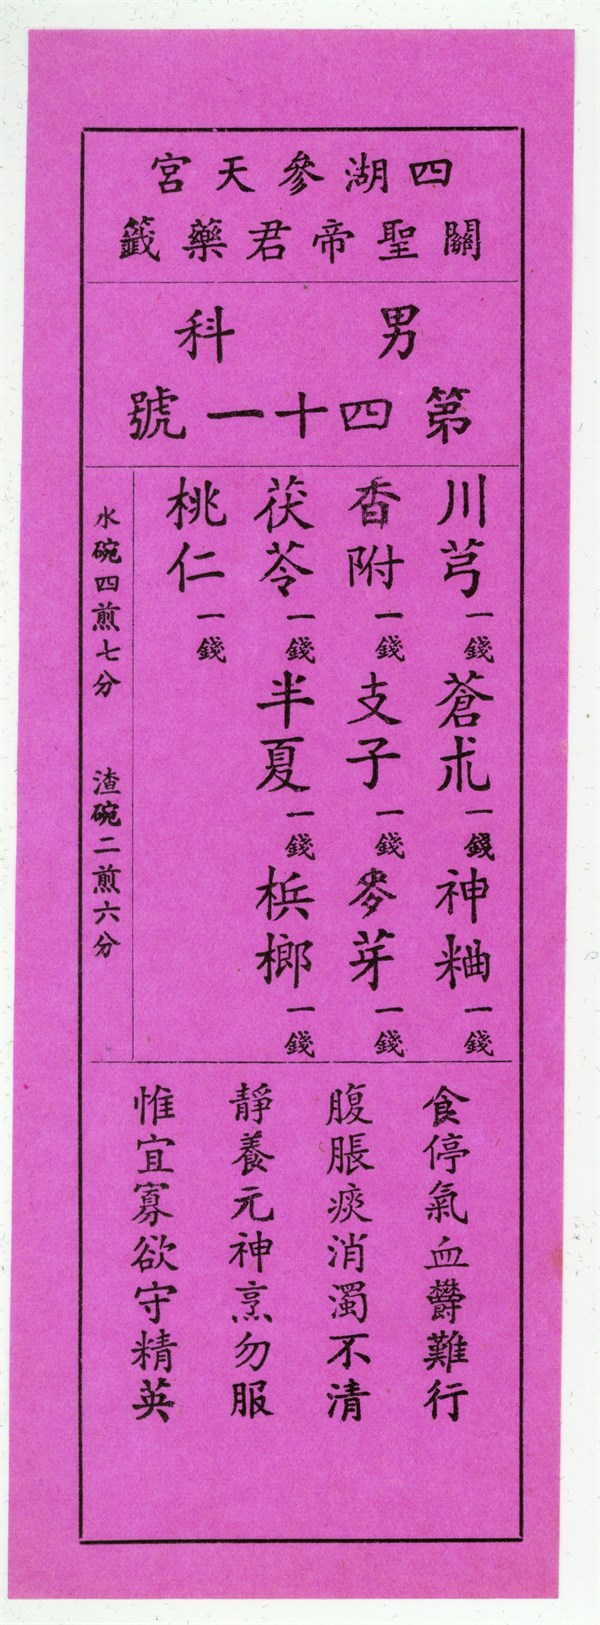 四湖參天宮
關聖帝君藥籤
男科
第四十一號
川芎一錢蒼朮一錢神粬一錢
香附一錢支子一錢麥芽一錢
茯苓一錢半夏一錢梹榔一錢
桃仁一錢
水碗四煎七分 渣碗二煎六分
食停氣血欝難行
腹脹痰消濁不清
靜養元神烹勿服
惟宜寡欲守精英